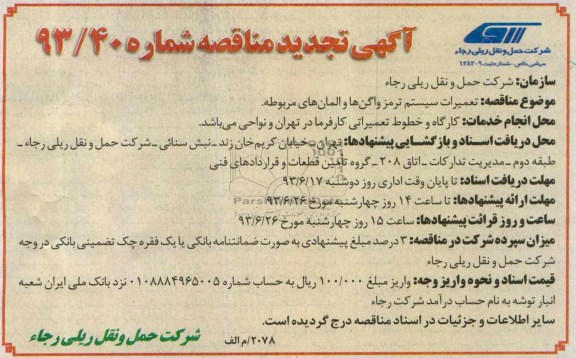 آگهی تجدید مناقصه شماره ۹۳/۴۰
شرکت حمل و نقل ریلی رجاء
سهامی خاص - شماره ثبت ۱۲۸۲۰۹
سازمان: شرکت حمل و نقل ریلی رجاء
موضوع مناقصه: تعمیرات سیستم ترمز واگن‌ها و المان‌های مربوطه.
محل انجام خدمات: کارگاه و خطوط تعمیراتی کارفرما در تهران و نواحی می‌باشد.
محل دریافت اسناد و بازگشایی پیشنهادها: تهران ـ خیابان کریم‌خان زند ـ نبش سنائی ـ شرکت حمل و نقل ریلی رجاء ـ
طبقه دوم ـ مدیریت تدارکات ـ اتاق ۲۰۸ ـ گروه تأمین قطعات و قراردادهای فنی
مهلت دریافت اسناد: تا پایان وقت اداری روز دوشنبه ۹۳/۶/۱۷
مهلت ارائه پیشنهادها: تا ساعت ۱۴ روز چهارشنبه مورخ ۹۳/۶/۲۶
ساعت و روز قرائت پیشنهادها: ساعت ۱۵ روز چهارشنبه مورخ ۹۳/۶/۲۶
میزان سپرده شرکت در مناقصه: ۳ درصد مبلغ پیشنهادی به صورت ضمانتنامه بانکی یا یک فقره چک تضمینی بانکی در وجه
شرکت حمل و نقل ریلی رجاء
قیمت اسناد و نحوه واریز وجه: واریز مبلغ ۱۰۰/۰۰۰ ریال به حساب شماره ۰۱۰۸۸۸۴۹۶۵۰۰۵ نزد بانک ملی ایران شعبه
انبار توشه به نام حساب درآمد شرکت رجاء
سایر اطلاعات و جزئیات در اسناد مناقصه درج گردیده است.
۲۰۷۸/م الف
شرکت حمل ونقل ریلی رجاء